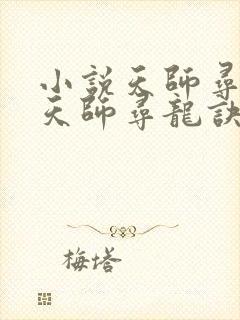 小説天師尋
天師尋龍訣
梅塔